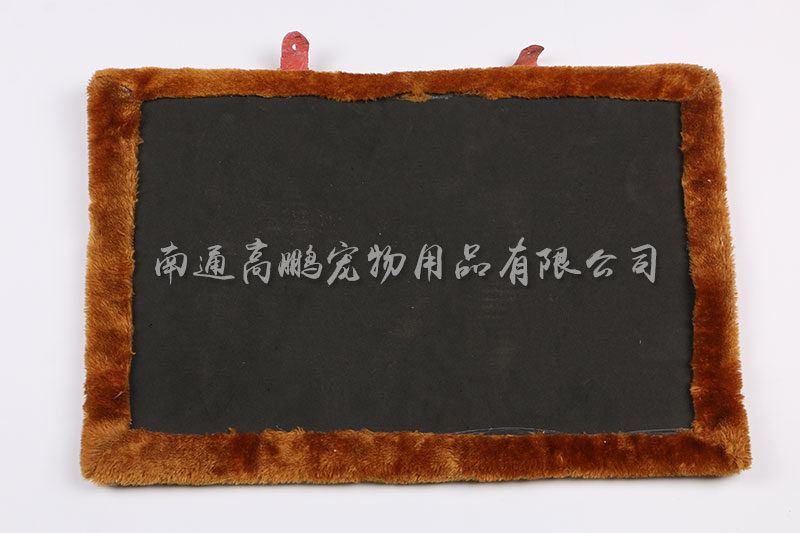 南通高鹏宠物用品有限公司